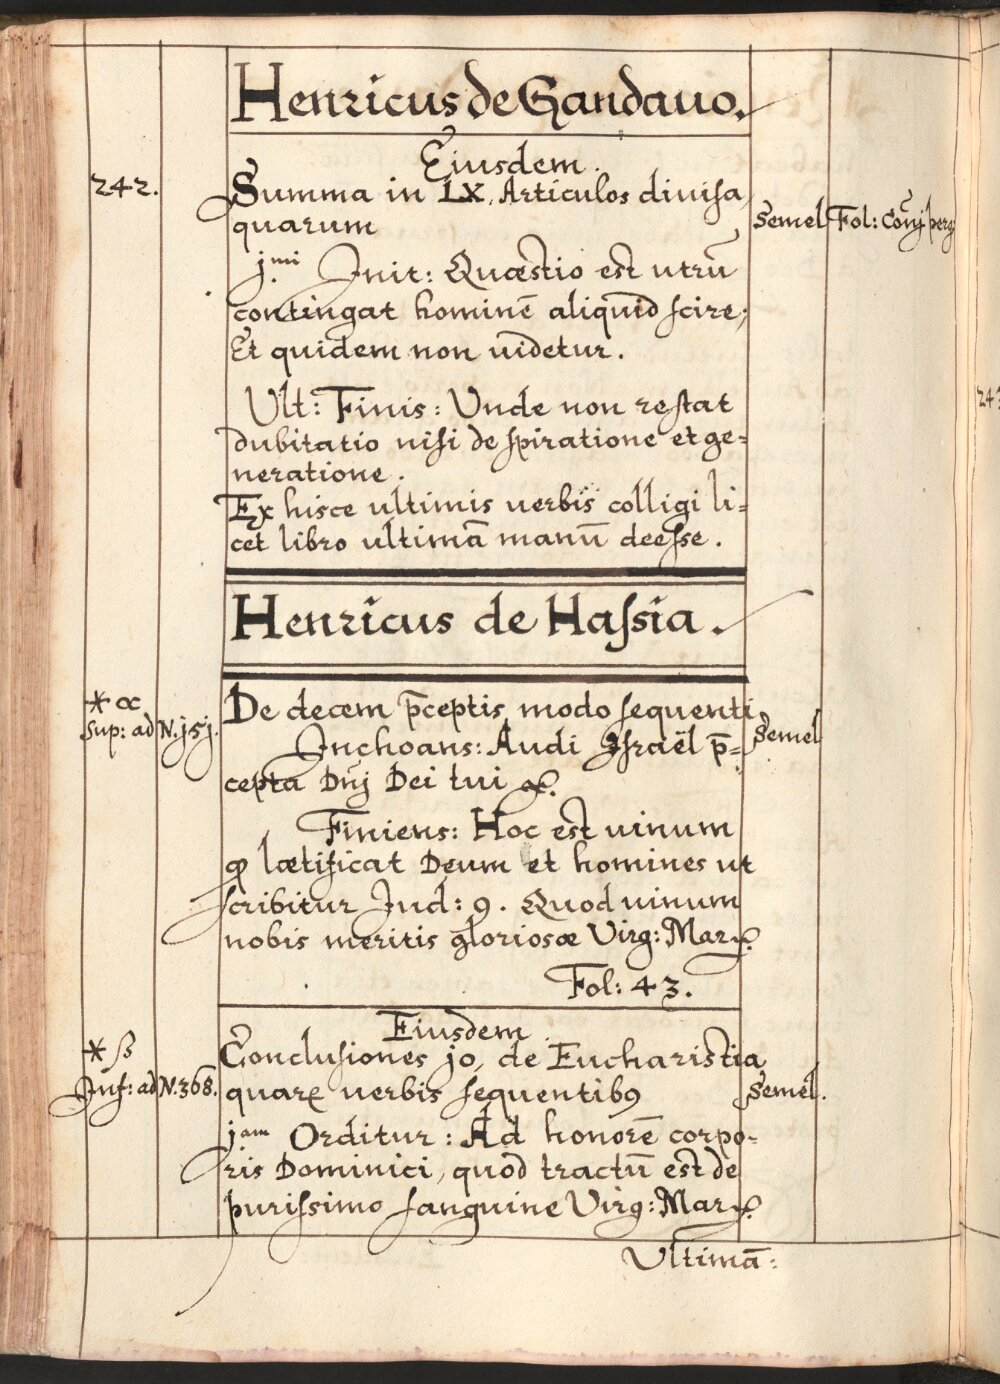 Henricus de Gandauo.
Eiusdem.
242.
Summa in LX. Articulos diuisa,
quarum
Semel Fol: Conj perg
j.mi Init: Quæstio est utrū
contingat hominē aliquid scire;
Et quidem non uidetur.
243
Ult: Finis: Vnde non restat
dubitatio nisi de spiratione et ge=
neratione.
Ex hisce ultimis uerbis colligi li=
cet libro ultimā manū deesse.
Henricus de Hassia.
* α
Sup: ad N. j5j.
De decem p̄ceptis modo sequenti,
Semel
Inchoans: Audi Israël p̄=
cepta Dnj Dei tui &.
Finiens: Hoc est uinum
qͦ lætificat Deum et homines ut
scribitur Jud: 9. Quod uinum
nobis meritis gloriosæ Virg: Mar
Fol: 43.
Eiusdem
* β
Inf: ad N. 368.
Conclusiones jo, de Eucharistia
Semel.
quarꝝ uerbis sequentibꝯ
j.am Orditur: Ad honorē corpo=
ris Dominici, quod tractū est de
purissimo sanguine Virg: Mar
Ultimā: